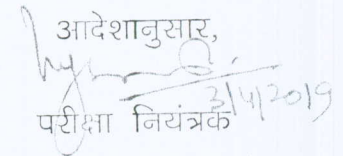 आदेशानुसार,
3/4/2019
परीक्षा नियंत्रक